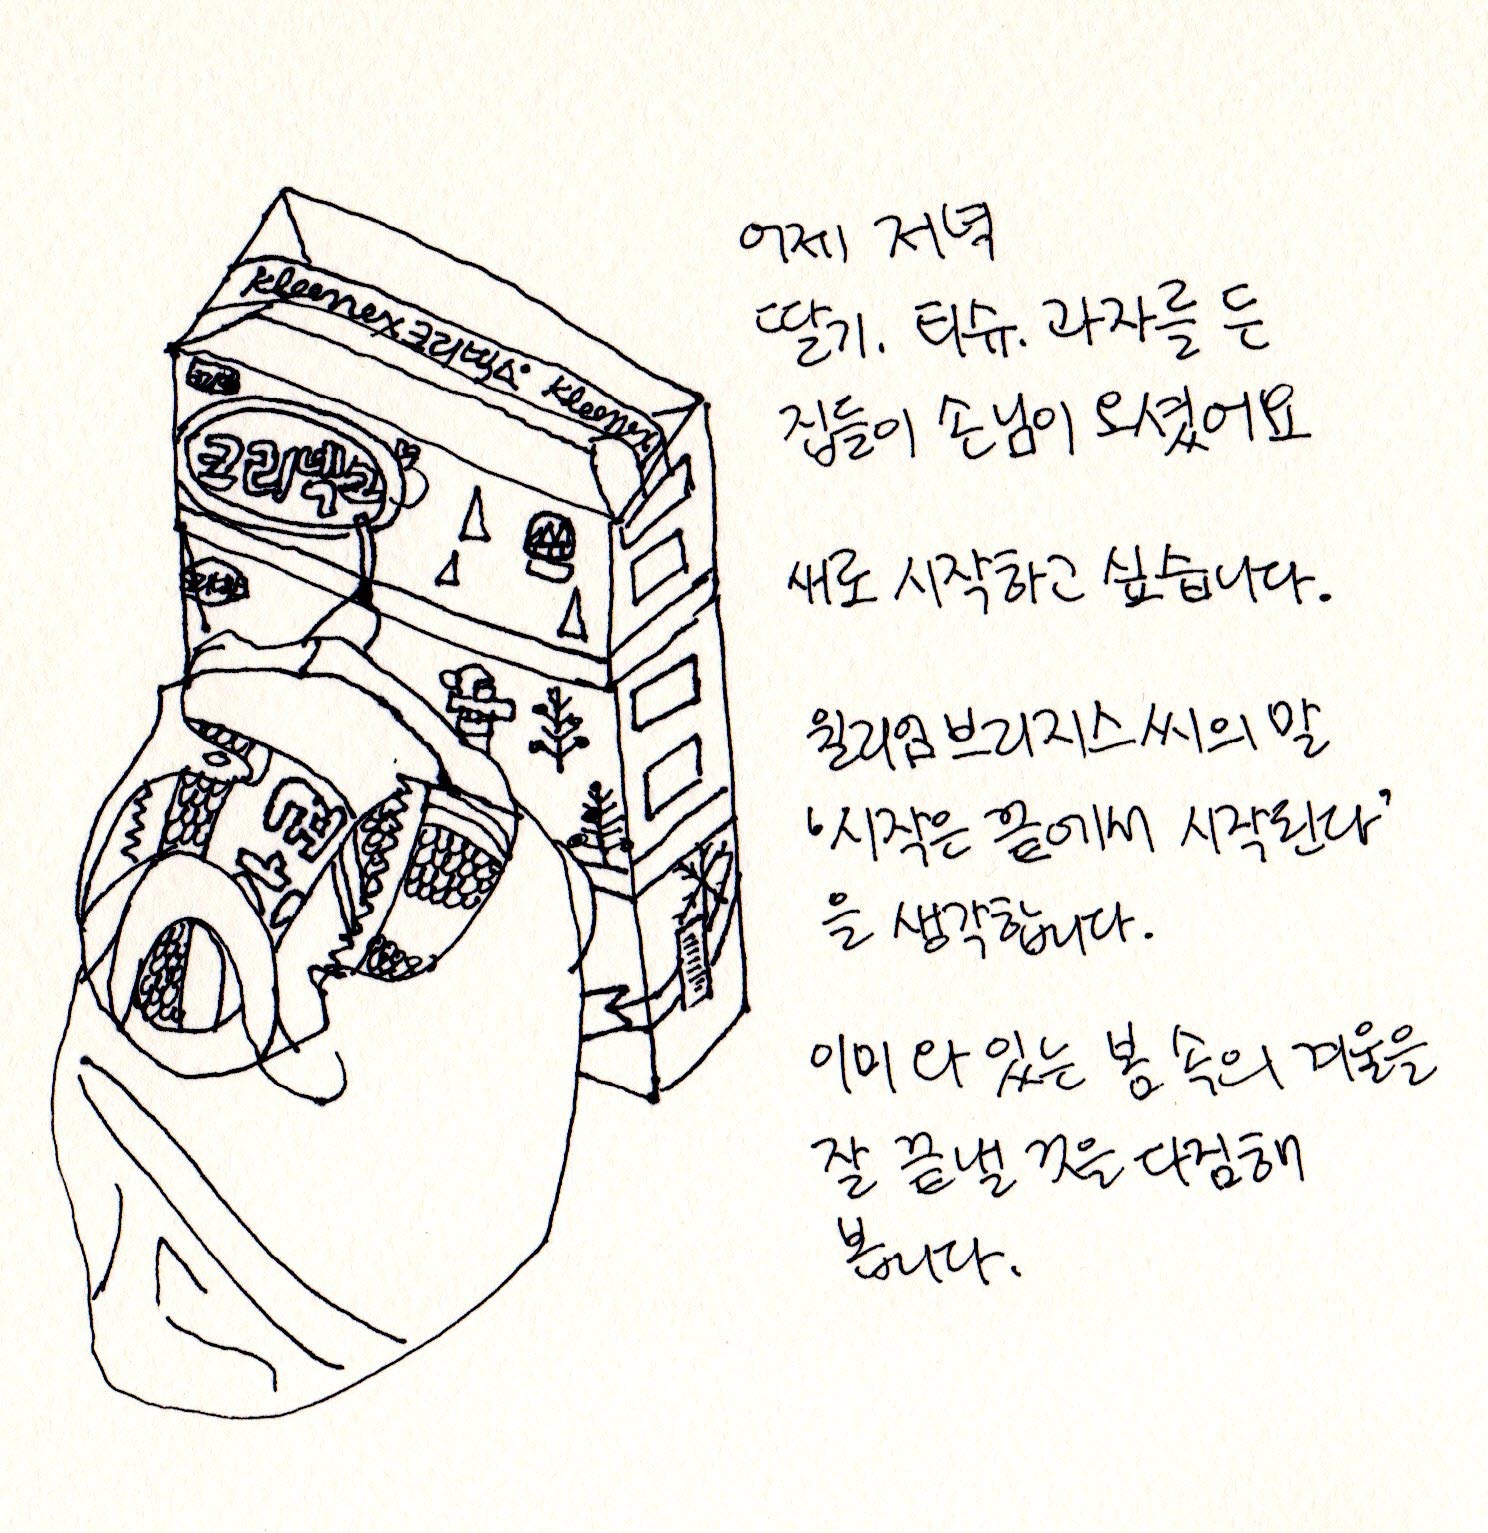 Kleenex 크리넥스 Kleenex
크리넥스
어제 저녁
딸기. 티슈. 과자를 든
집들이 손님이 오셨어요
새로 시작하고 싶습니다.
윌리엄 브리지스씨의 말
‘시작은 끝에서 시작된다’
을 생각합니다.
이미 와 있는 봄 속의 겨울을
잘 끝낼 것을 다짐해
봅니다.